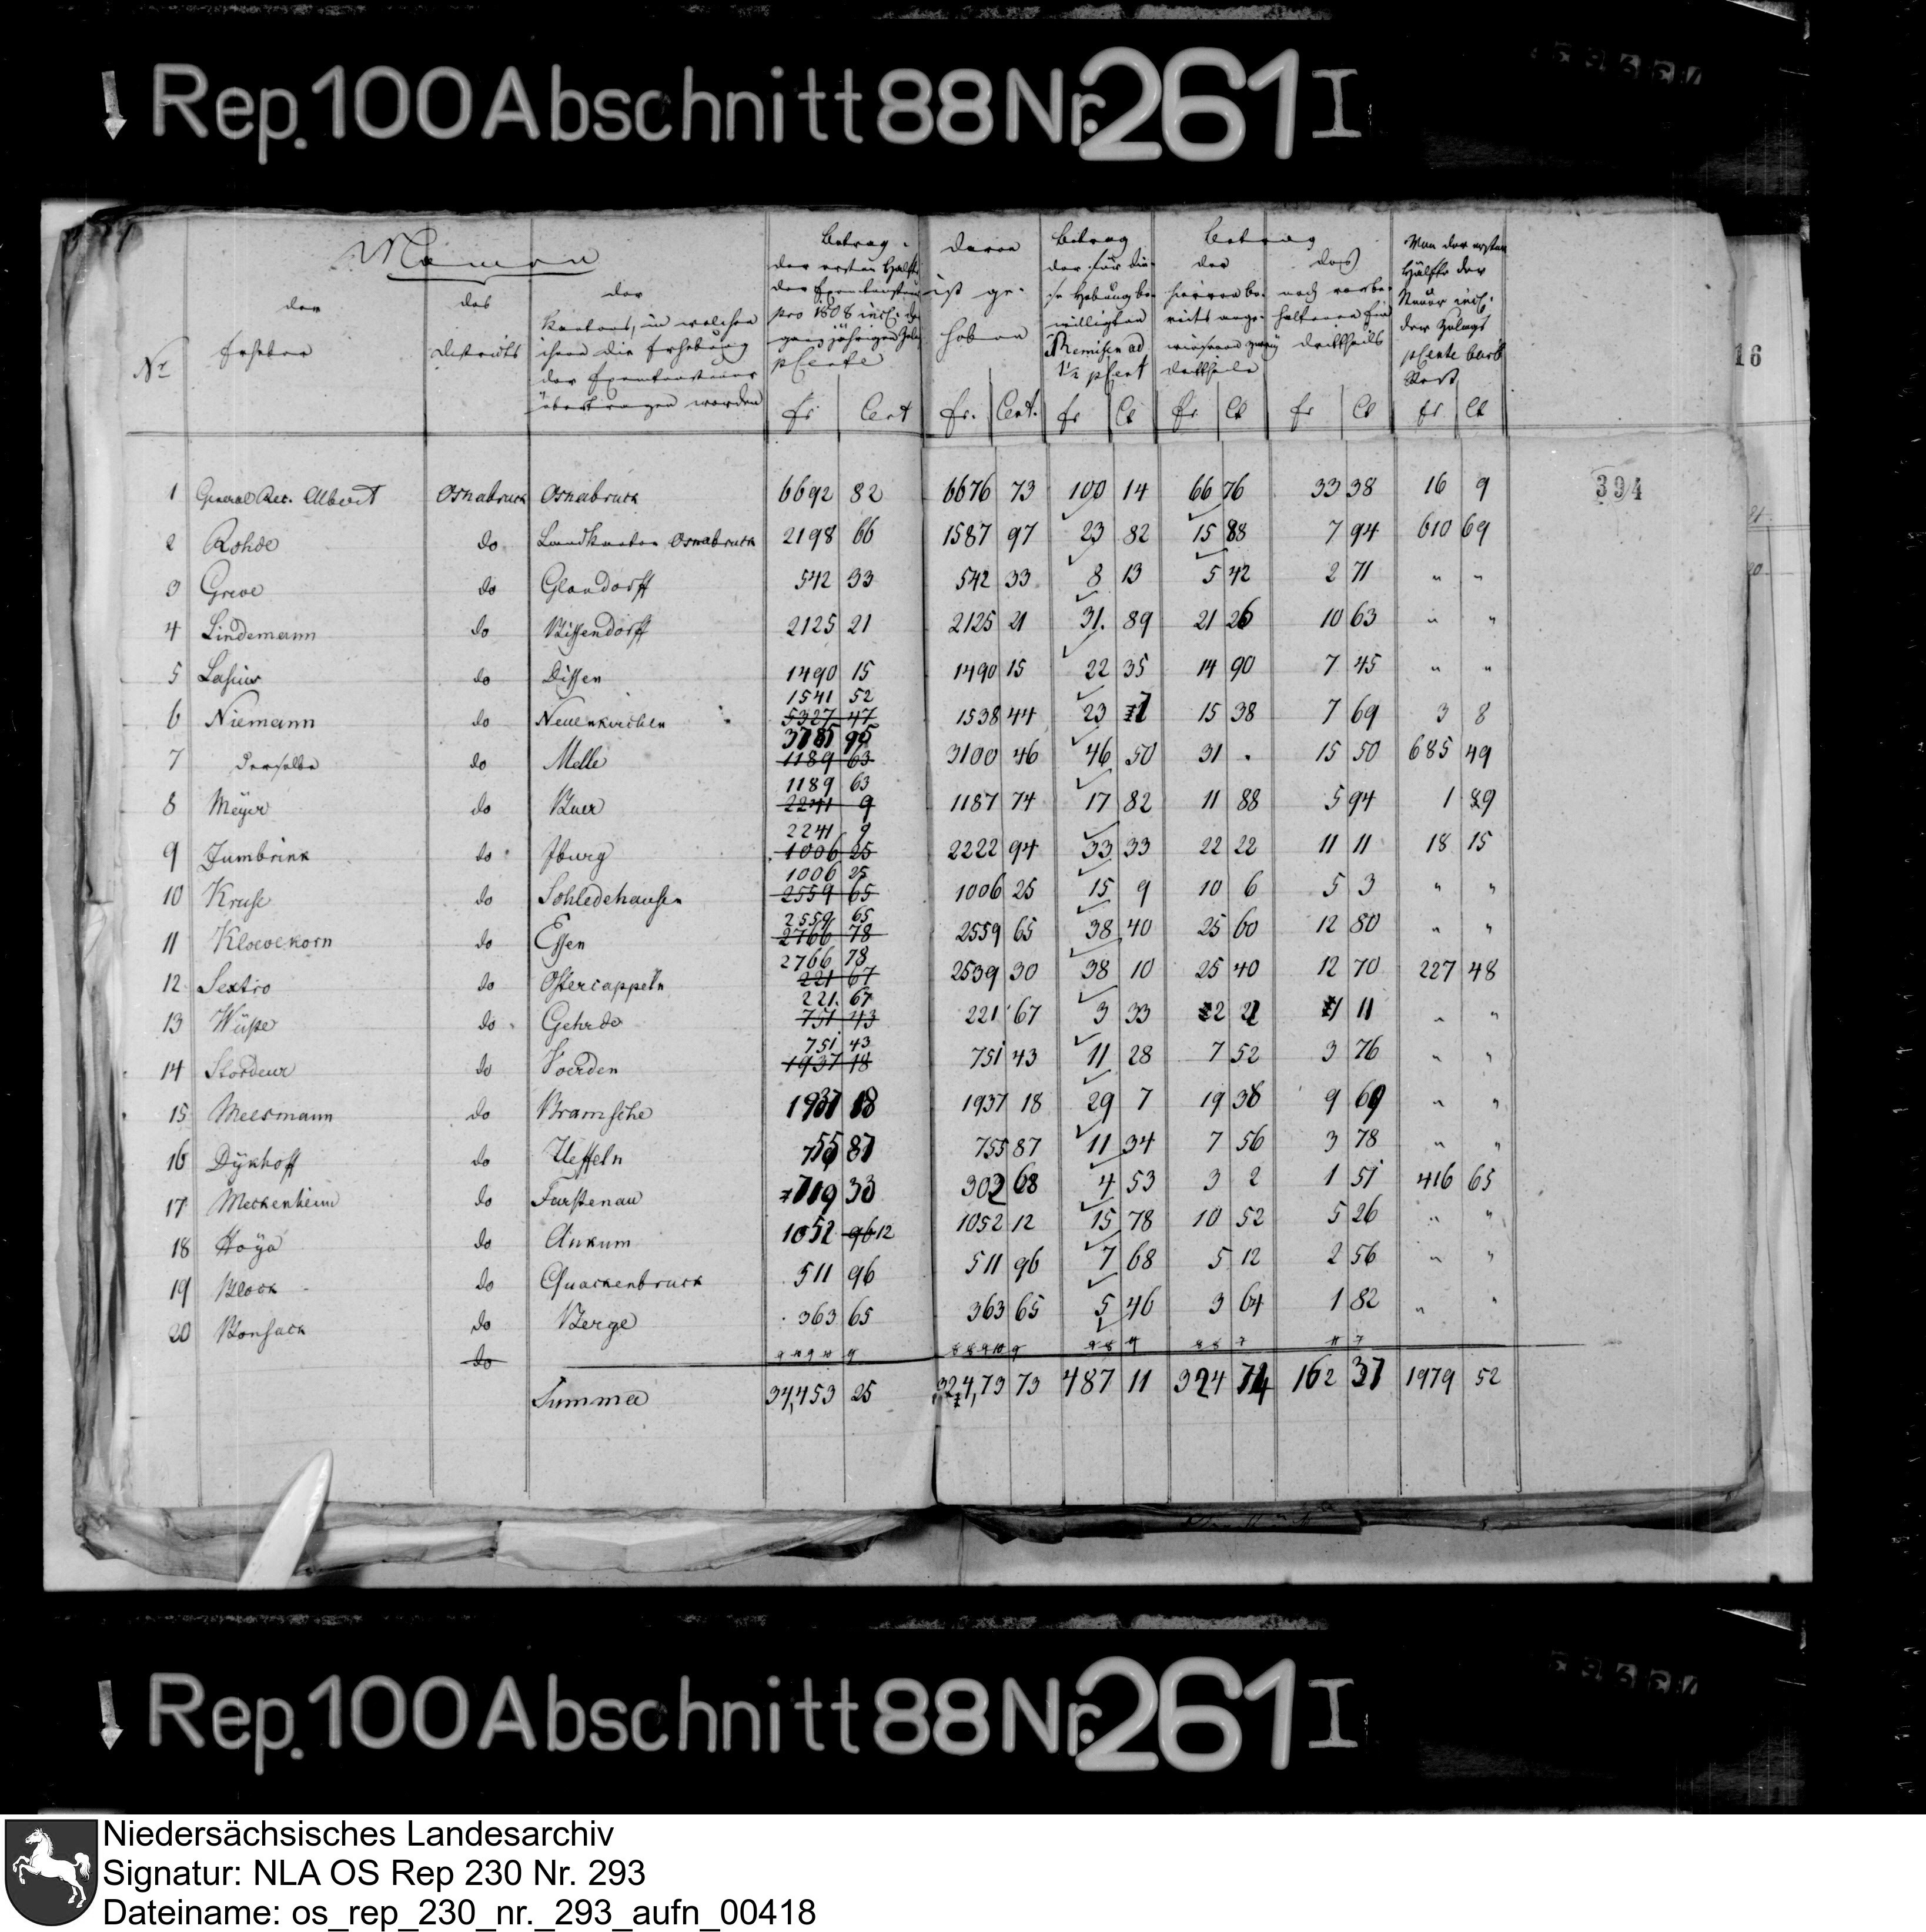 Rep. 100 Abschnitt 88 Nr. 261 I
Namen
der Erheber
des Districts
der Kantons, in welchen ihnen die Erhebung der Exemtensteuer übertragen worden
Betrag der ersten Hälfte der Exemtensteuer pro 1808 incl. der ganzjährigen Zulag pCente
Davon ist gehoben
Betrag der für diese Hebung bewilligten Remisen ad 1½ pCent
Betrag der hiervon bereits angewiesenen zwey drittheile
des noch vorbehaltenen ein drittheils
Von der ersten Hälfte der Steuer incl. der Zulags pCente bleibt Rest
Nr. fr Cent fr. Cent. fr Ct fr Ct fr Ct fr Ct
16
394
1 General Rec. Albert Osnabruck Osnabruck 6692 82 6676 73 100 14 66 76 33 38 16 9
2 Rohde do Landkanton Osnabruck 2198 66 1587 97 23 82 15 88 7 94 610 69
3 Greve do Glandorff 542 33 542 33 8 13 5 42 2 71 " "
4 Lindemann do Bissendorff 2125 21 2125 21 31. 89 21 26 10 63 " "
5 Lasius do Dissen 1490 15 1490 15 22 35 14 90 7 45 " "
1541 52
6 Niemann do Neuenkirchen 5327 47 1538 44 23 15 38 7 69 3 8
3785 95
7 Derselbe do Melle 1189 63 3100 46 46 50 31 . 15 50 685 49
1189 63
8 Meyer do Buer 2241 9 1187 74 17 82 11 88 5 94 1 89
2241 9
9 Zumbrink do Iburg 1006 25 2222 94 33 33 22 22 11 11 18 15
1006 25
10 Kruse do Schledehausen 2559 65 1006 25 15 9 10 6 5 3 " "
2559 65
11 Kloevekorn do Essen 2766 78 2559 65 38 40 25 60 12 80 " "
2766 78
12 Sextro do Ostercappeln 221 67 2539 30 38 10 25 40 12 70 227 48
221. 67
13 Wüste do Gehrde 751 43 221 67 3 33 2 22 1 11 " "
751 43
14 Stordeur do Voerden 1937 18 751 43 11 28 7 52 3 76 " "
15 Meesmann do Bramsche 1937 18 1937 18 29 7 19 38 9 69 " "
16 Dykhoff do Ueffeln 755 87 755 87 11 34 7 56 3 78 " "
17 Meckenheim do Furstenau 719 33 302 68 4 53 3 2 1 51 416 65
18 Hoya do Ankum 1052 96 12 1052 12 15 78 10 52 5 26 " "
19 Block do Quackenbruck 511 96 511 96 7 68 5 12 2 56 " "
20 Bonsack do Berge 363 65 363 65 5 46 3 64 1 82 " "
do
Summa 34,453 25 32473 73 487 11 324 74 162 37 1979 52
Rep. 100 Abschnitt 88 Nr. 261 I
Niedersächsisches Landesarchiv
Signatur: NLA OS Rep 230 Nr. 293
Dateiname: os_rep_230_nr._293_aufn_00418